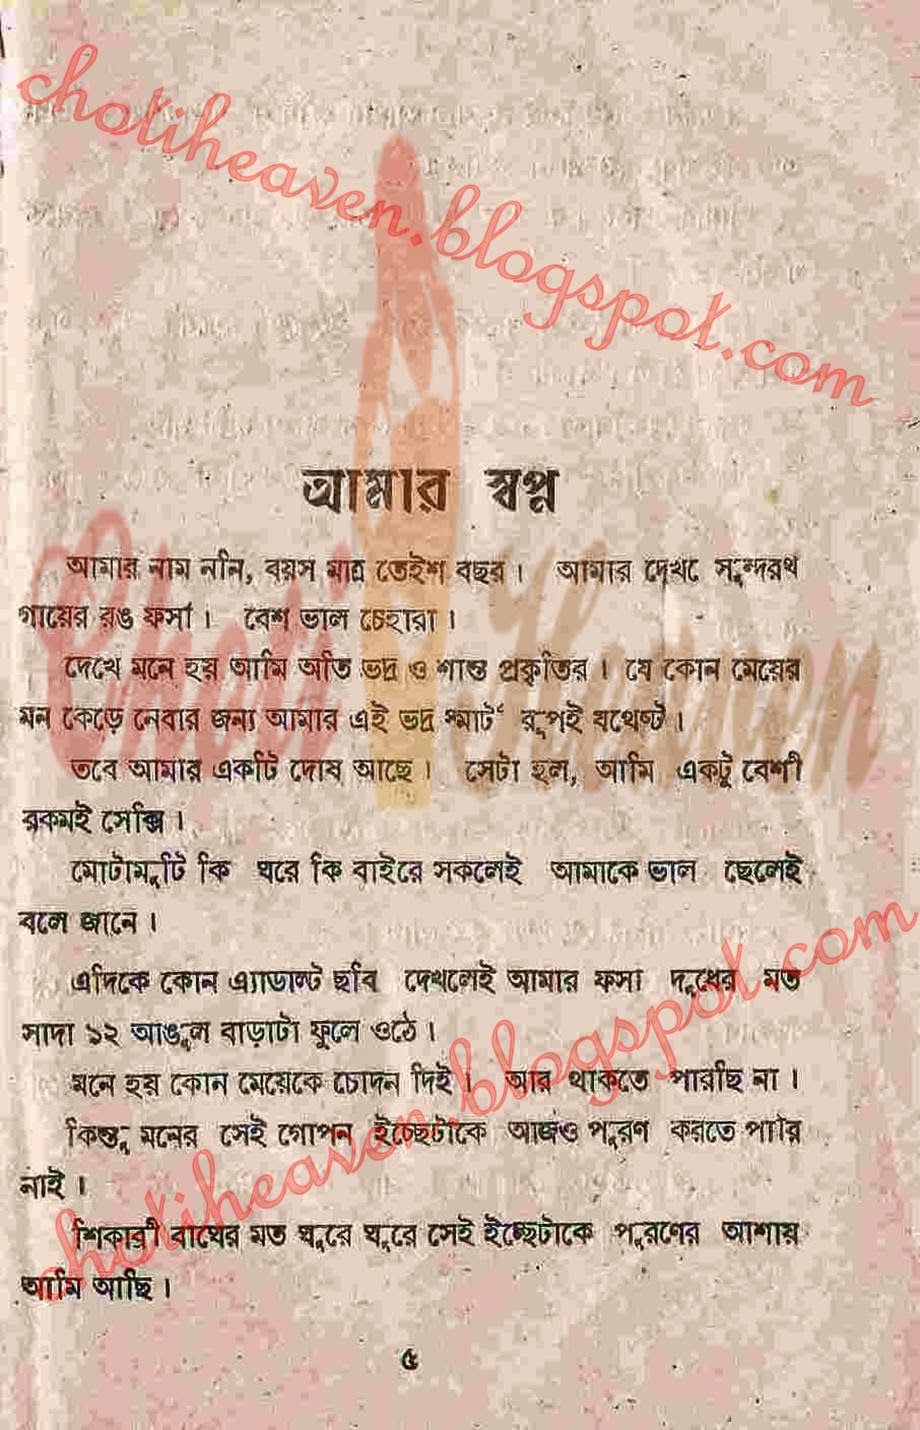 chotiheaven.blogspot.com
আমার স্বপ্ন
আমার নাম ননি, বয়স মাত্র তেইশ বছর। আমার দেখতে সুন্দরথ
গায়ের রঙ ফর্সা। বেশ ভাল চেহারা।
দেখে মনে হয় আমি অতি ভদ্র ও শান্ত প্রকৃতির। যে কোন মেয়ের
মন কেড়ে নেবার জন্য আমার এই ভদ্র স্মার্ট রূপই যথেষ্ট।
তবে আমার একটি দোষ আছে। সেটা হল, আমি একটু বেশী
রকমই সেক্সি।
মোটামুটি কি ঘরে কি বাইরে সকলেই আমাকে ভাল ছেলেই
বলে জানে।
এদিকে কোন এ্যাডাল্ট ছবি দেখলেই আমার ফর্সা দুধের মত
সাদা ১২ আঙুল বাড়াটা ফুলে ওঠে।
মনে হয় কোন মেয়েকে চোদন দিই। আর থাকতে পারছি না।
কিন্তু মনের সেই গোপন ইচ্ছেটাকে আজও পূরণ করতে পারি
নাই।
শিকারী বাঘের মত ঘুরে ঘুরে সেই ইচ্ছেটাকে পূরণের আশায়
আমি আছি।
৫
Choti Heaven
chotiheaven.blogspot.com